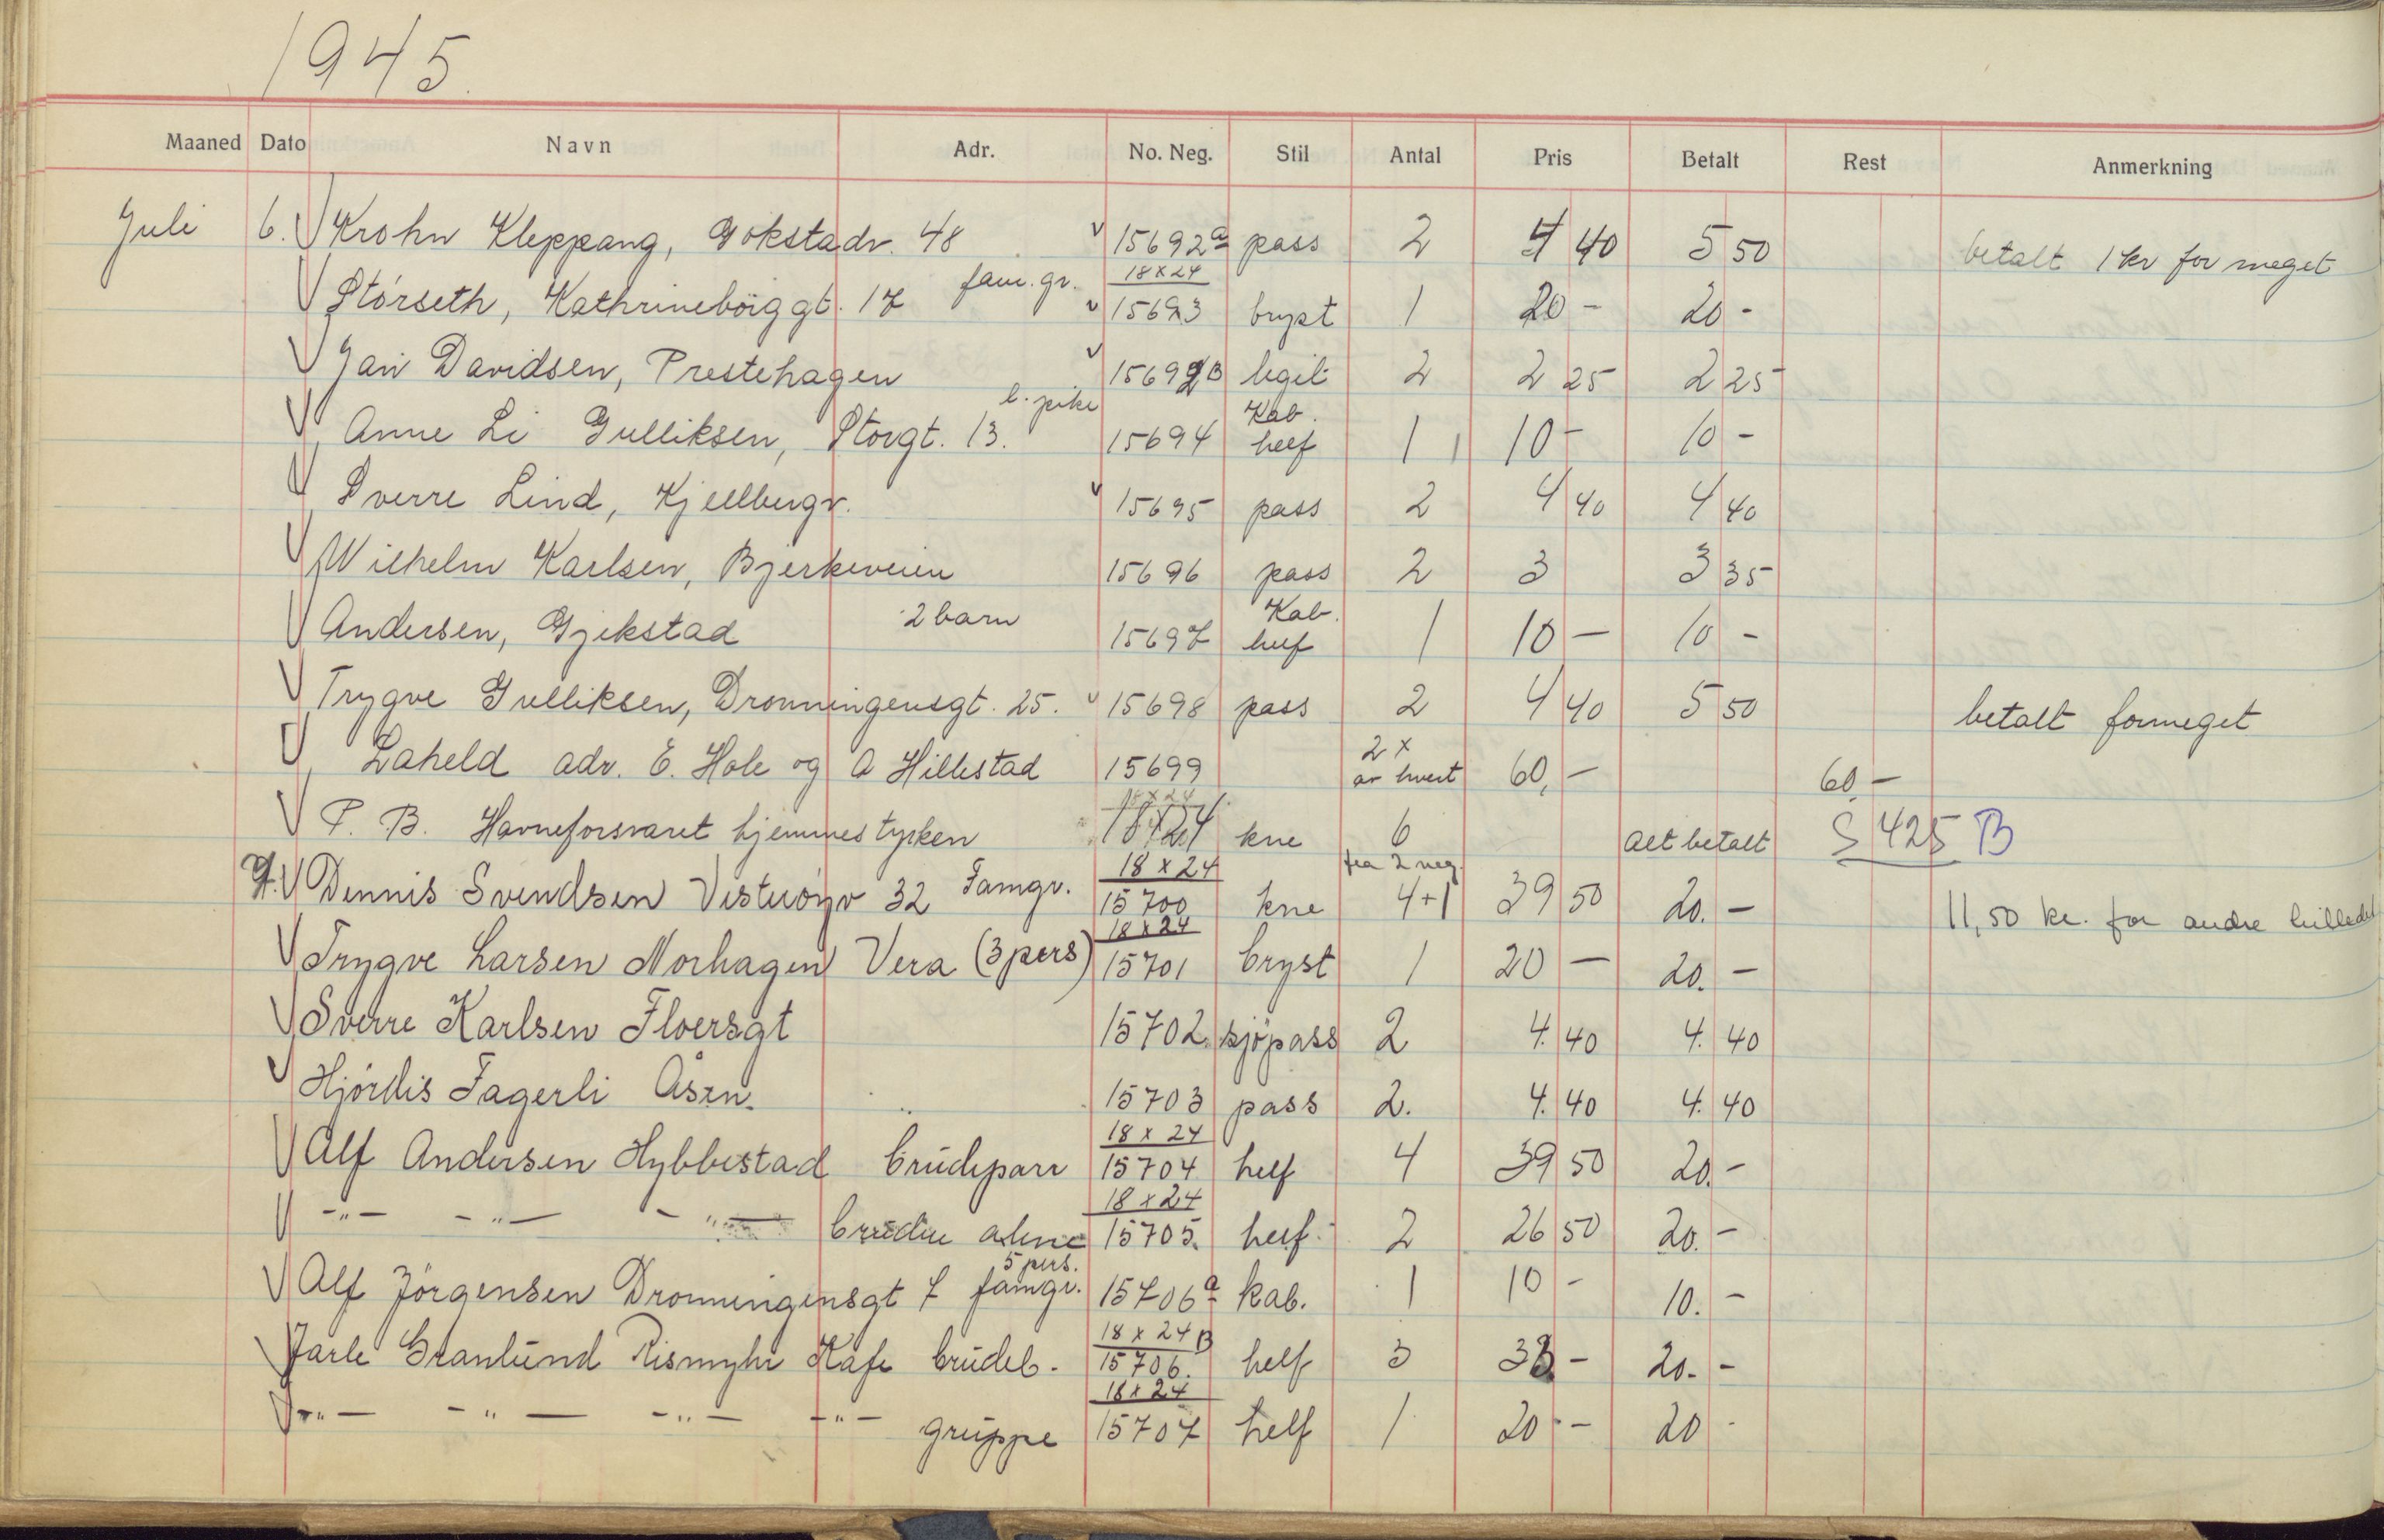 1945.
Maaned Dato Navn Adr. No. Neg. Stil Antal Pris Betalt Rest Anmerkning
Juli 6. Krohn Kleppang, Gokstadv. 48 15692a pass 2 4 40 5 50 betalt 1 kr for meget
Störseth, Kathrineböiggt. 17 fam. gr. 18x24 15693 bryst 1 20 - 20 -
Jan Davidsen, Prestehagen 15692B legit 2 2 25 2 25
Anne Li Gulliksen, Storgt. 13. l. pike 15694 Kab. helf 1 10 - 10 -
Sverre Lind, Kjellbergv. 15695 pass 2 4 40 4 40
Wilhelm Karlsen, Bjerkeveien 15696 pass 2 3 3 35
Andersen, Gjekstad 2 barn 15697 Kab. helf 1 10 - 10 -
Trygve Gulliksen, Dronningensgt. 25. 15698 pass 2 4 40 5 50 betalt formeget
Laheld adr. E. Hole og A Hillestad 15699 2 x av hvert 60,- 60,-
P. B. Havneforsvaret hjemmestyrken 18x24 kne 6 Alt betalt S 425 B
7. Dennis Svendsen 32 Famgr. 18x24 15700 kne fra 2 neg. 4+1 39 50 20. - 11,50 kr. for andre billedet
Trygve Larsen Norhagen Vera (3 pers) 18x24 15701 bryst 1 20 - 20. -
Sverre Karlsen Floersgt 15702 sjöpass 2 4. 40 4. 40
Hjördis Fagerli Åsen. 15703 pass 2. 4. 40 4. 40
Alf Andersen Hybbestad brudeparr 18x24 15704 helf 4 39 50 20. -
-"- -"- -"- bruden alene 18x24 15705. helf 2 26 50 20. -
Alf Jörgensen Dronningensgt 7 5 pers. famgr. 15706a kab. 1 10 - 10. -
Jarle Granlund Rismyhr Kafe brudeb. 18x24 15706. B helf 3 33 - 20. -
-"- -"- -"- -"- gruppe 18x24 15707 helf 1 20 - 20 -